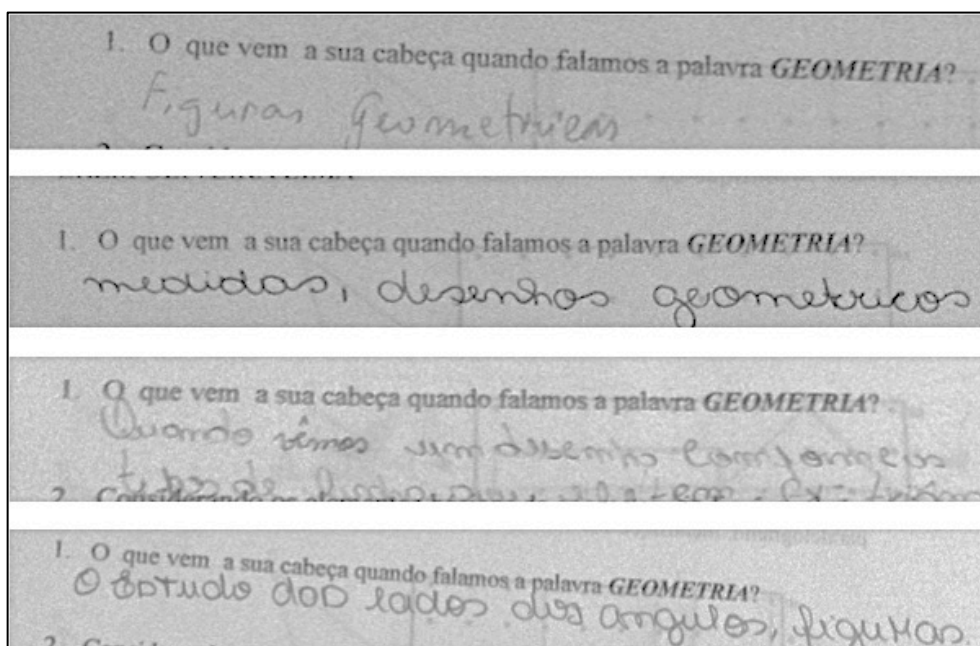 1. O que vem a sua cabeça quando falamos a palavra GEOMETRIA?
Figuras Geometricas
1. O que vem a sua cabeça quando falamos a palavra GEOMETRIA?
medidas, desenhos geometricos
1. O que vem a sua cabeça quando falamos a palavra GEOMETRIA?
Quando vêmos um desenho
2. Considerando os
1. O que vem a sua cabeça quando falamos a palavra GEOMETRIA?
O Estudo dos lados dos angulos, figuras.